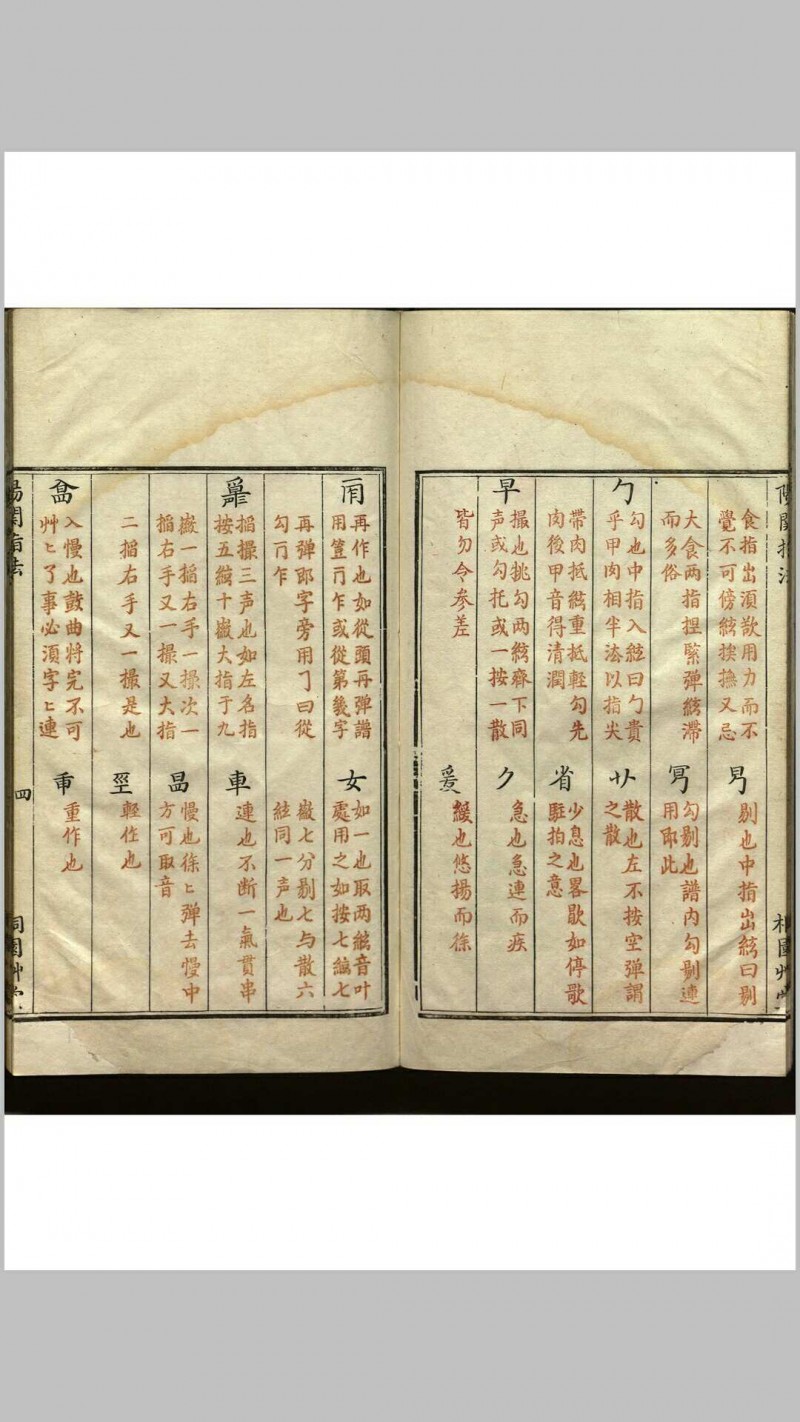 食指出須歘用力而不
覺不可傍絃挨撫又忌
大食两指揑緊彈絃滯
而多俗
勹
勾也中指入絃曰勹貴
乎甲肉相半法以指尖
帶肉抵絃重抵輕勾先
肉後甲音得清潤
早
撮也挑勾两絃齊下同
声或勾托或一按一散
皆勿令参差
剔也中指出絃曰剔
勾剔也譜内勾剔連
用即此
散也左不按空彈謂
之散
省
少息也畧歇如停歌
駐拍之意
急也急連而疾
爰
緩也悠揚而徐
再作也如從頭再彈譜
用乍或從第幾字
再彈即字旁用㇆曰從
勾乍
搯撮三声也如左名指
按五絃十嶶大指于九
嶶一搯右手一撮次一
搯右手又一撮又大指
二搯右手又一撮是也
入慢也鼓曲將完不可
艸〻了事必須字〻連
女
如一也取两絃音叶
處用之如按七絃七
嶶七分剔七与散六
絃同一声也
車
連也不断一氣貫串
慢也徐〻彈去慢中
方可取音
輕作也
重作也
四